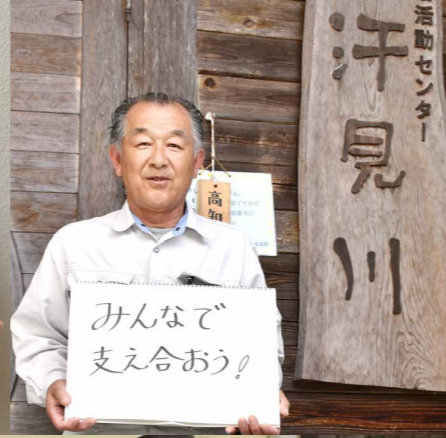 活動センター
汗見川
高知
みんなで
支え合おう!